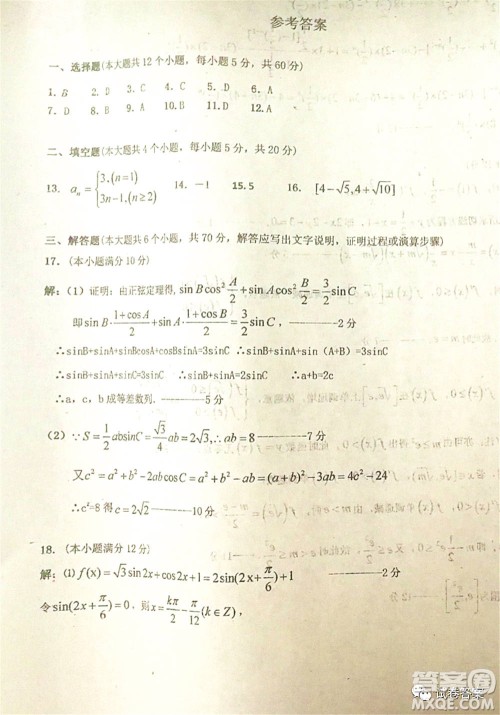 参考答案
一、选择题(本大题共 12 个小题，每小题 5 分，共 60 分)
1. B 2. D 3. C 4. C 5. D 6. A
7. D 8. D 9. A 10. B 11. D 12. A
二、填空题(本大题共 4 个小题，每小题 5 分，共 20 分)
13. a_n={3,(n=1) 3n-1,(n≥2) 14. -1 15. 5 16. [4-√5,4+√10]
三、解答题(本大题共 6 个小题，共 70 分，解答应写出文字说明，证明过程或演算步骤)
17. (本小题满分 10 分)
解：(1) 证明：由正弦定理得, sinBcos²A/2+sinAcos²B/2=3/2sinC
即 sinB·(1+cosA)/2+sinA·(1+cosB)/2=3/2sinC，--------2分
∴sinB+sinA+sinBcosA+cosBsinA=3sinC ∴sinB+sinA+sin（A+B）=3sinC
∴sinB+sinA+sinC=3sinC ∴sinB+sinA=2sinC ∴a+b=2c
∴a，c，b 成等差数列.--------5分
(2) ∵S=1/2absinC=√3/4ab=2√3,∴ab=8--------7分
又c²=a²+b²-2abcosC=a²+b²-ab=(a+b)²-3ab=4c²-24
∴c²=8 得c=2√2--------10分
18. (本小题满分 12 分)
解：(1) f(x)=√3sin2x+cos2x+1=2sin(2x+π/6)+1 --------2分
令sin(2x+π/6)=0，则x=kπ/2-π/12(k∈Z)，
试卷答案
答案圈
MXQE.COM